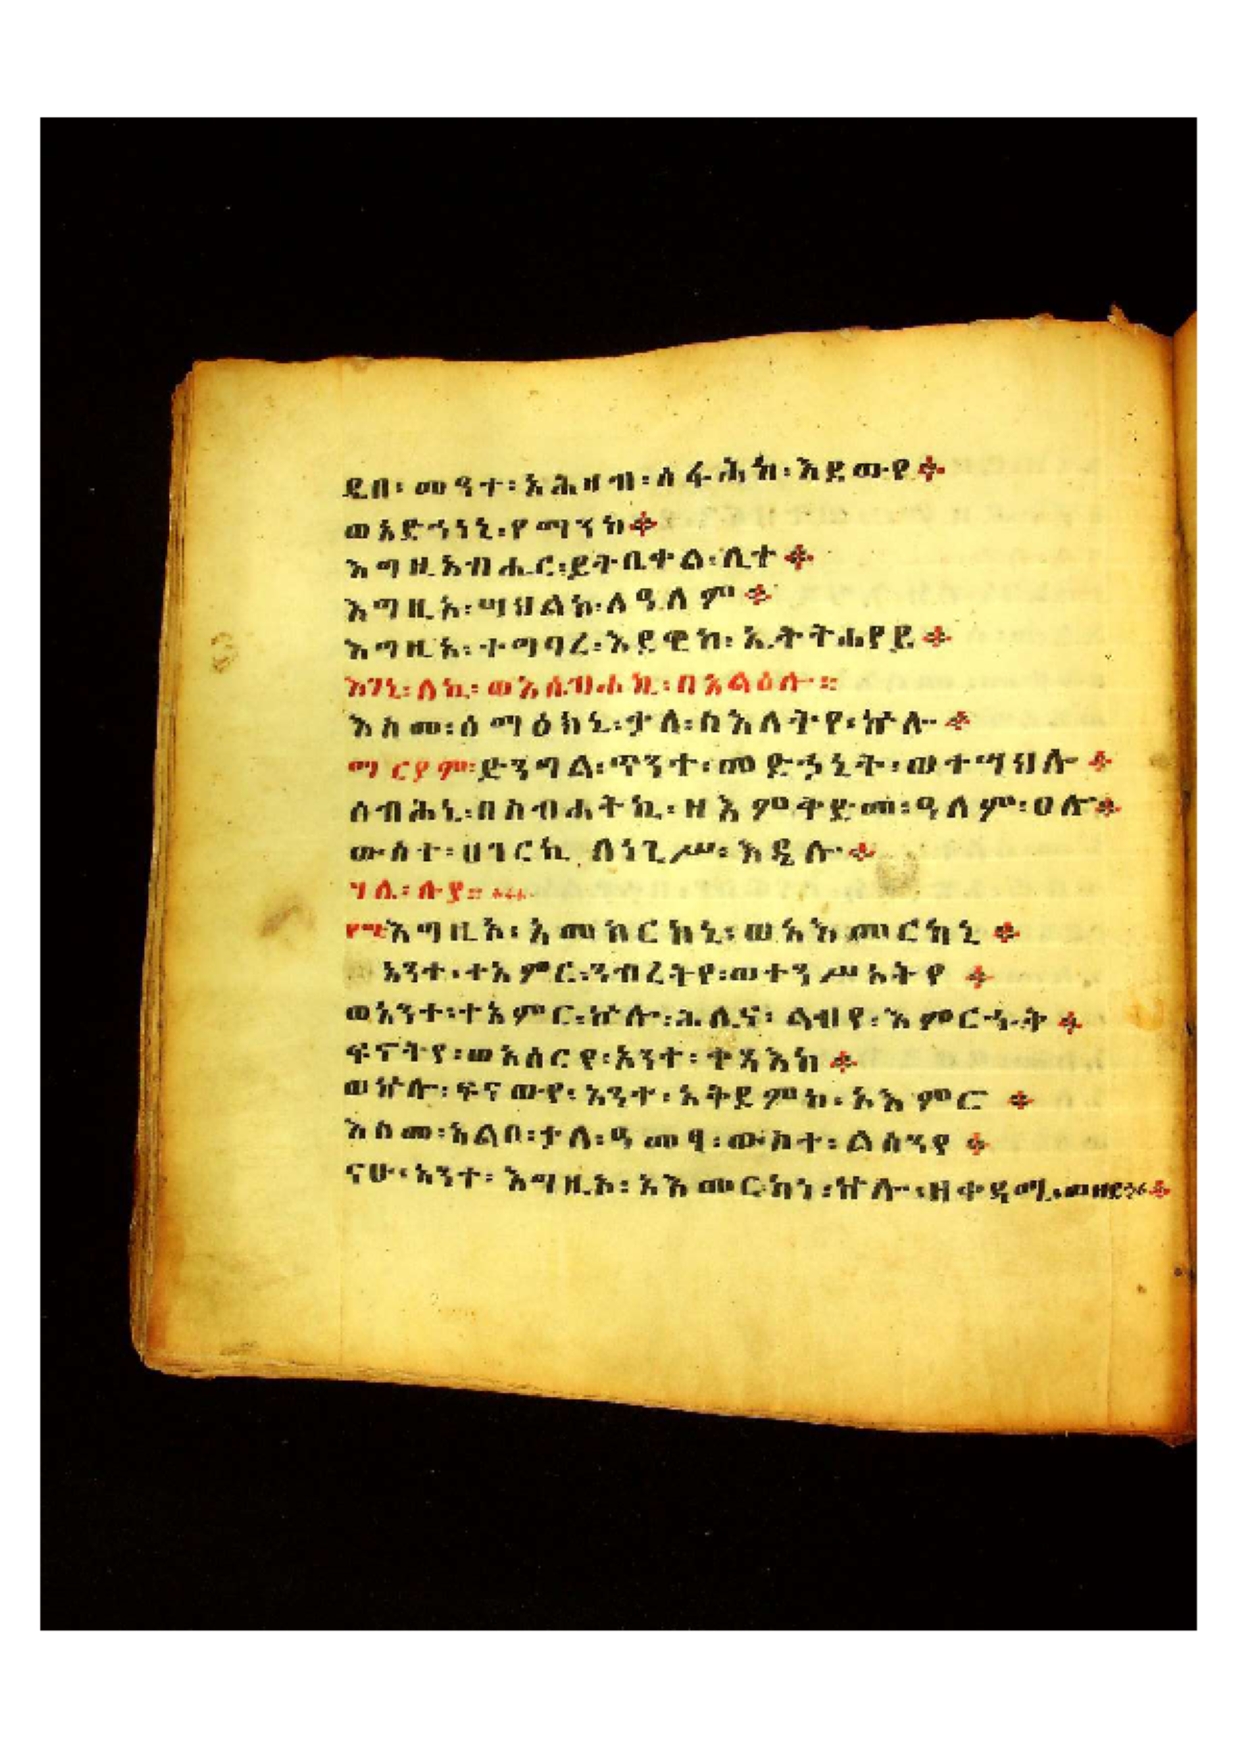 ዲበ፡ መዓተ፡ አሕዛብ፡ ሰፋሕከ፡ እደውየ፨
ወአድኅነኒ፡ የማንከ፨
እግዚአብሔር፡ ይትቤቀል፡ ሊተ፨
እግዚኦ፡ ሣህልከ፡ ለዓለም፨
እግዚኦ፡ ተግባረ፡ እደዊከ፡ ኢትትሐየይ፨
እገኒ፡ ለኪ፡ ወእሴብሐኪ፡ በእልዕሉ።
እስመ፡ ሰማዕክኒ፡ ቃለ፡ ስእለትየ፡ ኵሉ፨
ማርያም፡ ድንግል፡ ጥንተ፡ መድኃኒት፡ ወተሣህሉ፨
ሰብሕኒ፡ በስብሐትኪ፡ ዘእምቅድመ፡ ዓለም፡ ሀሉ፨
ውስተ፡ ሀገርኪ ለነጊሥ፡ እዴሉ፨
ሃሌ፡ ሉያ።
እግዚኦ፡ አመከርከኒ፡ ወአእመርከኒ፨
አንተ፡ ተአምር፡ ንብረትየ፡ ወተንሥኦትየ፨
ወአንተ፡ ተአምር፡ ኵሎ፡ ሕሊና፡ ልብየ፡ እምርኁቅ፨
ፍኖትየ፡ ወአሰርየ፡ አንተ፡ ቀጻእከ፨
ወኵሎ፡ ፍናውየ፡ አንተ፡ አቅደምከ፡ አእምሮ፨
እስመ፡ አልቦ፡ ቃለ፡ ዓመፃ፡ ውስተ፡ ልሳንየ፨
ናሁ፡ አንተ፡ እግዚኦ፡ አእመርከነ፡ ኵሎ፡ ዘቀዳሚ፡ ወዘደኃሪ፨